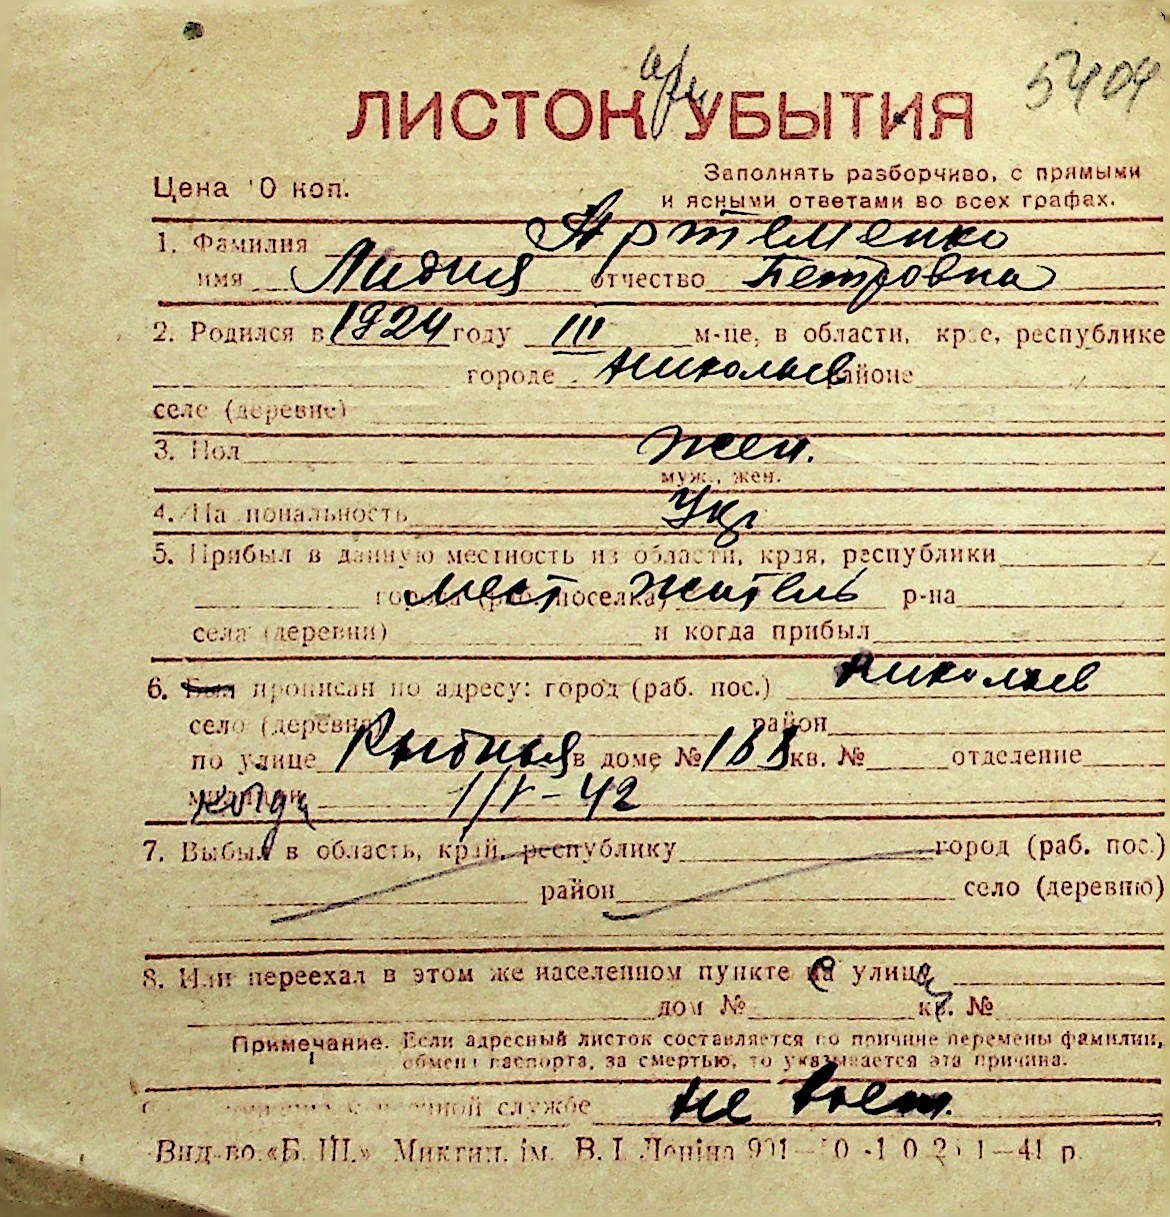 5404
ЛИСТОК УБЫТИЯ
Цена 0 коп.
Заполнять разборчиво, с прямыми
и ясными ответами во всех графах.
1. Фамилия Артеменко
имя Лидия отчество Петровна
2. Родился в 1924 году III м-це, в области, крае, республике
городе Николаев районе
селе (деревне)
3. Пол жен.
муж., жен.
4. Национальность Укр
5. Прибыл в данную местность из области, края, республики
города (раб. поселка) мест житель р-на
села (деревни) и когда прибыл
6. Был прописан по адресу: город (раб. пос.) Николаев
село (деревня) район
по улице Рыбная в доме № 188 кв. № отделение
милиции когда 1/V-42
7. Выбыл в область, край, республику город (раб. пос.)
район село (деревню)
8. Или переехал в этом же населенном пункте на улицу
дом № кв. №
Примечание. Если адресный листок составляется по причине перемены фамилии,
обмена паспорта, за смертью, то указывается эта причина.
службе не воен.
Вид-во «Б. Ш.» Микгип. ім. В. І. Леніна 41 р.